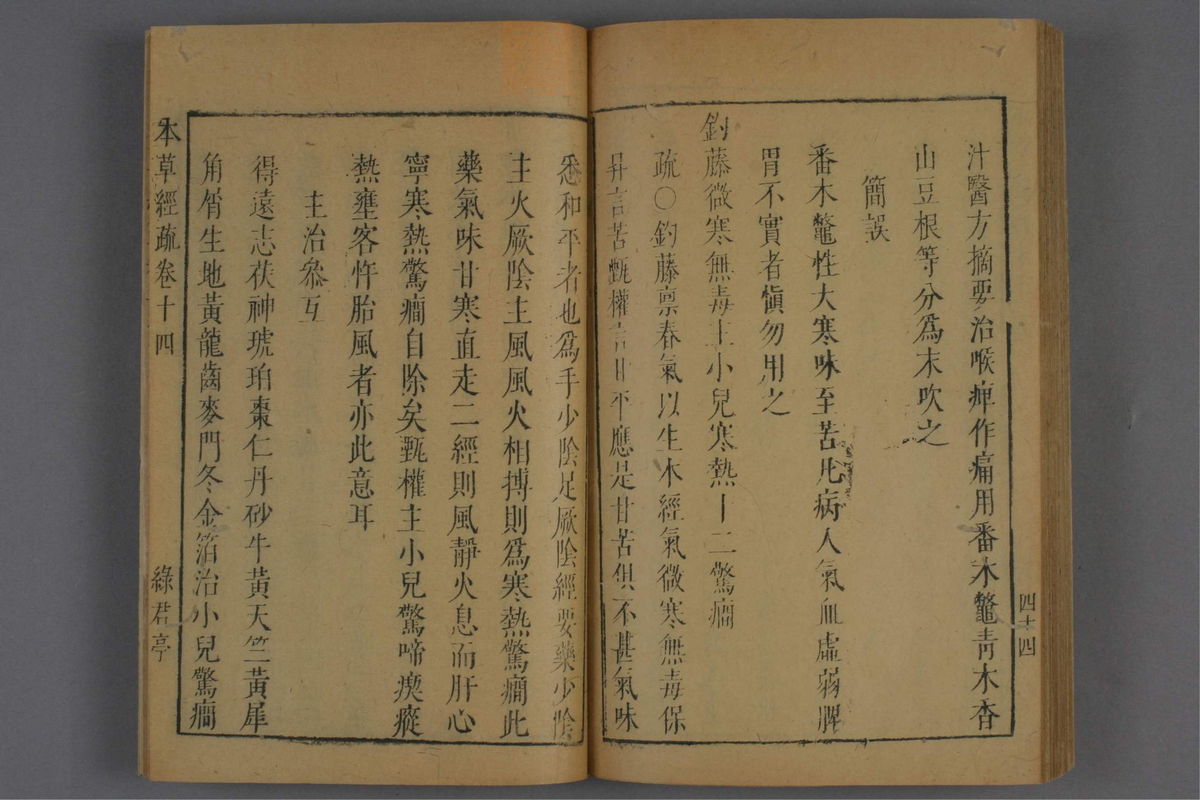 汁醫方摘要治喉痺作痛用番木鼈青木香
山豆根等分爲末吹之
簡誤
番木鼈性大寒味至苦凡病人氣血虛弱脾
胃不實者愼勿用之
釣藤微寒無毒主小兒寒熱十二驚癎
疏○釣藤禀春氣以生木經氣微寒無毒保
昇言苦甄權言甘平應是甘苦俱不甚氣味
四十四
悉和平者也爲手少陰足厥陰經要藥少陰
主火厥陰主風風火相搏則爲寒熱驚癎此
藥氣味甘寒直走二經則風靜火息而肝心
寧寒熱驚癎自除矣甄權主小兒驚啼瘈瘲
熱壅客忤胎風者亦此意耳
主治叅互
得遠志茯神琥珀棗仁丹砂牛黃天竺黃犀
角屑生地黃龍齒麥門冬金箔治小兒驚癎
本草經疏卷十四
綠君亭